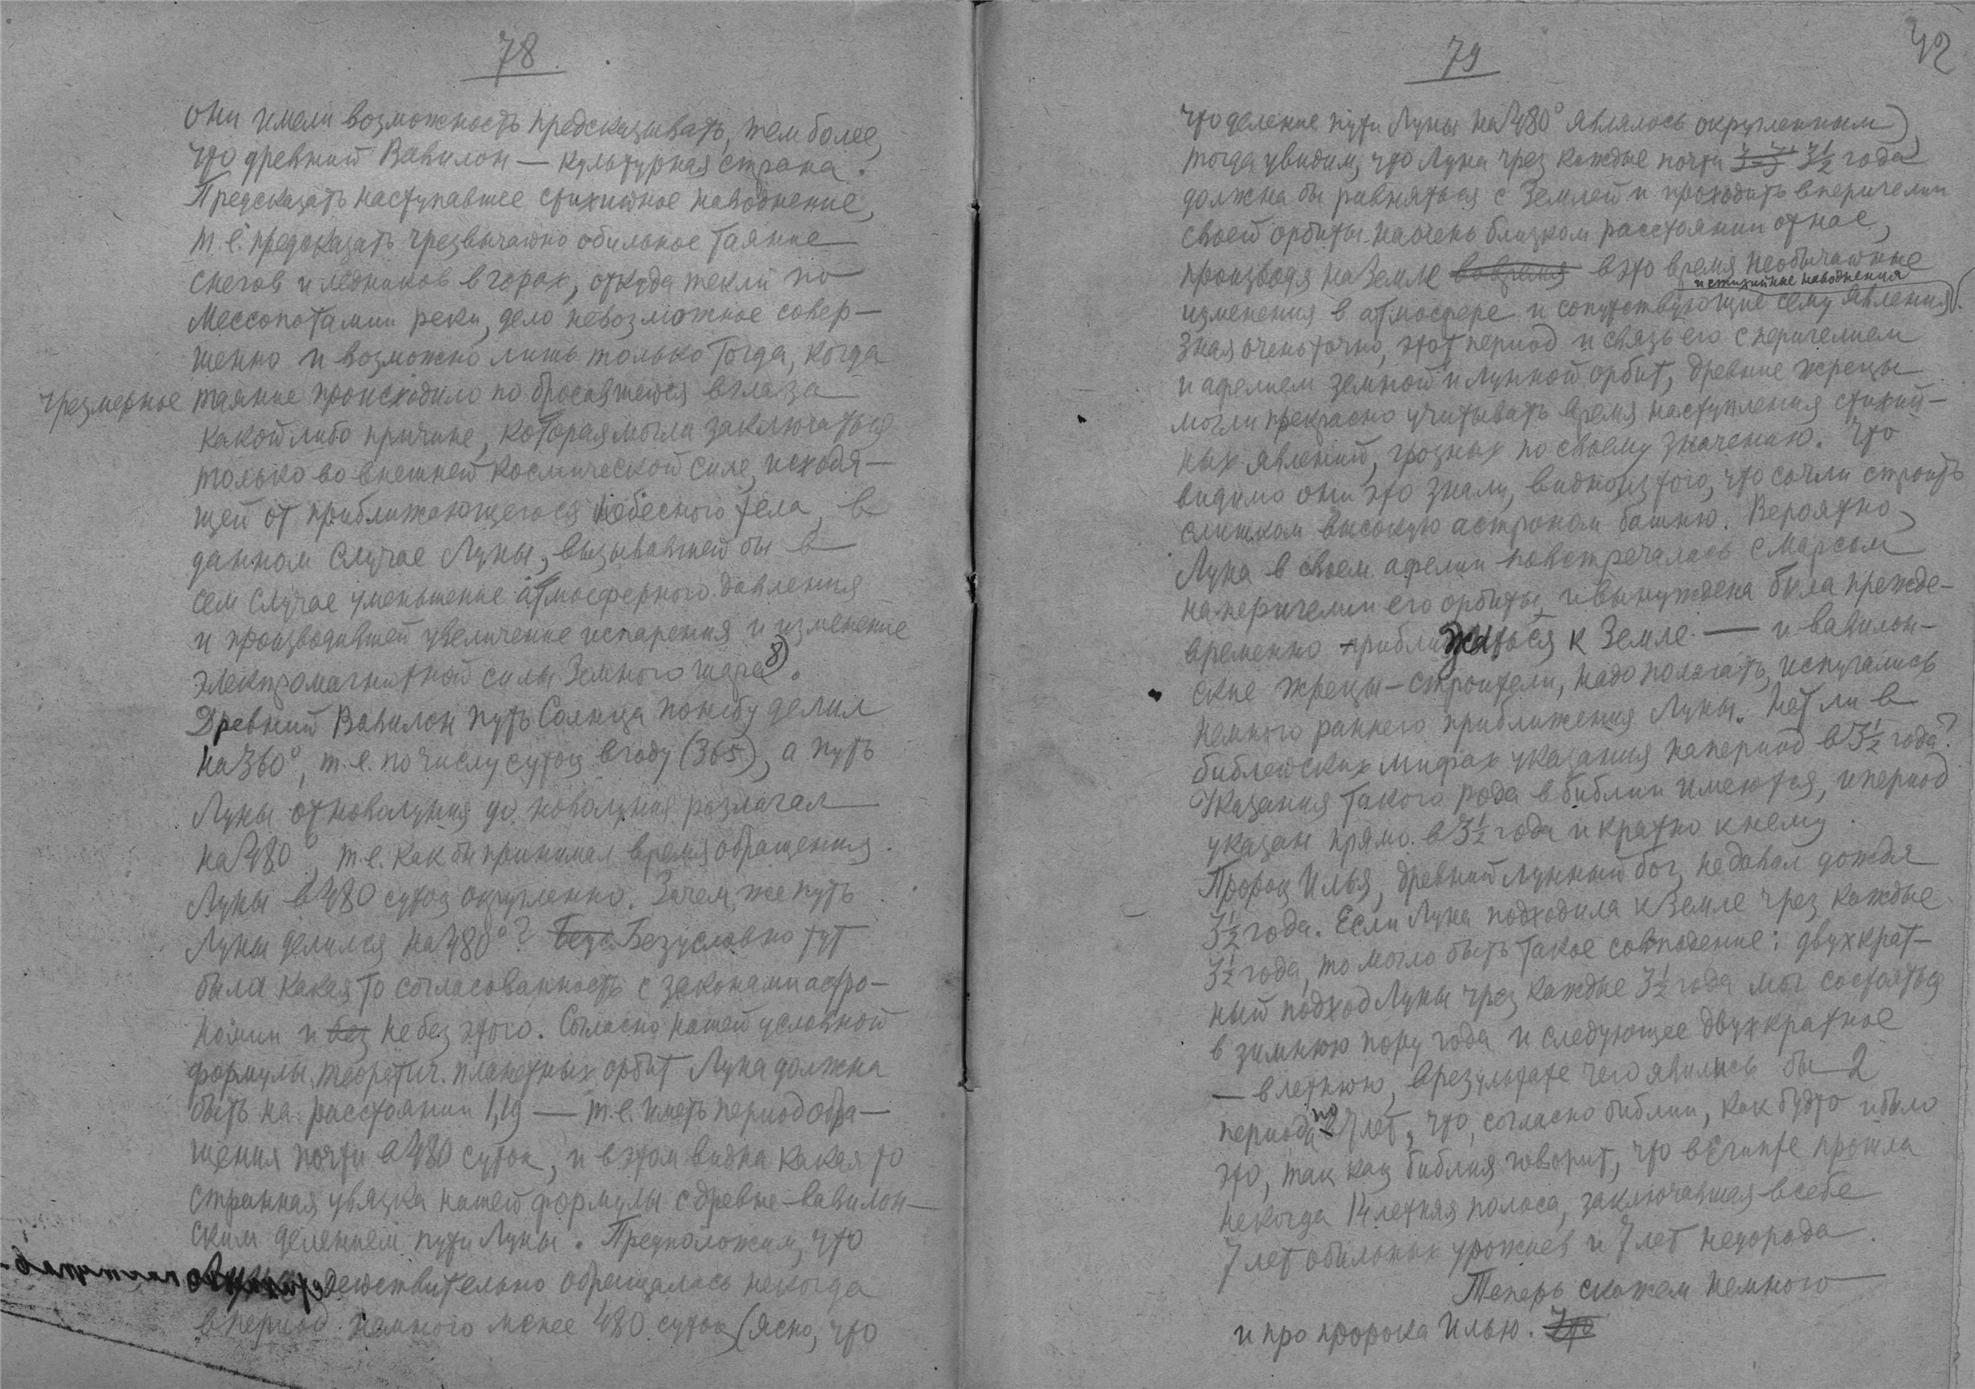 78
они имели возможность предсказывать, тем более,
что древний Вавилон — культурная страна.
Предсказать наступавшее стихийное наводнение,
т.е. предсказать чрезвычайно обильное таяние
снегов и ледников в горах, откуда текли по
Мессопотамии реки, дело невозможное совер-
шенно и возможно лишь только тогда, когда
чрезмерное таяние происходило по бросавшейся в глаза
какой либо причине, которая могла заключаться
только во внешней космической силе, исходя-
щей от приближающегося небесного тела, в
данном случае Луны, вызывавшей бы в
сем случае уменьшение атмосферного давления
и производившей увеличение испарения и изменение
электромагнитной силы Земного шара 8).
Древний Вавилон путь Солнца по небу делил
на 360°, т.е. по числу суток в году (365), а путь
Луны от новолуния до новолуния разлагал
на 480°, т.е. как бы принимал время обращения
Луны в 480 суток округленно. Зачем же путь
Луны делился на 480°? Безусловно тут
была какая то согласованность с законами астро-
номии и без не без этого. Согласно нашей условной
формулы теоретич. планетных орбит Луна должна
быть на расстоянии 1,19 — т.е. иметь период обра-
щения почти в 480 суток, и в этом видна какая то
странная увязка нашей формулы с древне-вавилон-
ским делением пути Луны. Предположим, что
действительно обращалась некогда
в период немного менее 480 суток (ясно, что
79
42
что деление пути Луны на 480° являлось округленным),
тогда увидим, что Луна чрез каждые почти 3½ года
должна бы равняться с Землей и проходить в перигелии
своей орбиты на очень близком расстоянии от нас,
производя на Земле во время в это время необычайные
и стихийные наводнения
изменения в атмосфере и сопутствующие сему явления.
Зная очень точно, этот период и связь его с перигелием
и афелием земной и лунной орбит, древние жрецы
могли прекрасно учитывать время наступления стихий-
ных явлений, грозных по своему значению. Что
видимо они это знали, видно из того, что сочли строить
слишком высокую астроном. башню. Вероятно,
Луна в своем афелии повстречалась с Марсом
на перигелии его орбиты и вынуждена была прежде-
временно приближаться к Земле — и вавилон-
ские жрецы-строители, надо полагать, испугались
немного раннего приближения Луны. Нет ли в
библейских мифах указания на период в 3½ года?
Указания такого рода в библии имеются, и период
указан прямо в 3½ года и кратно к нему.
Пророк Илья, древний лунный бог, не давал дождя
3½ года. Если Луна подходила к Земле чрез каждые
3½ года, то могло быть такое совпадение: двухкрат-
ный подход Луны чрез каждые 3½ года мог состояться
в зимнюю пору года и следующее двухкратное
— в летнюю, в результате чего явились бы 2
периода по 7 лет, что, согласно библии, как будто и было
это, так как библия говорит, что в Египте прошла
некогда 14 летняя полоса, заключавшая в себе
7 лет обильных урожаев и 7 лет недорода.
Теперь скажем немного
и про пророка Илью. Это